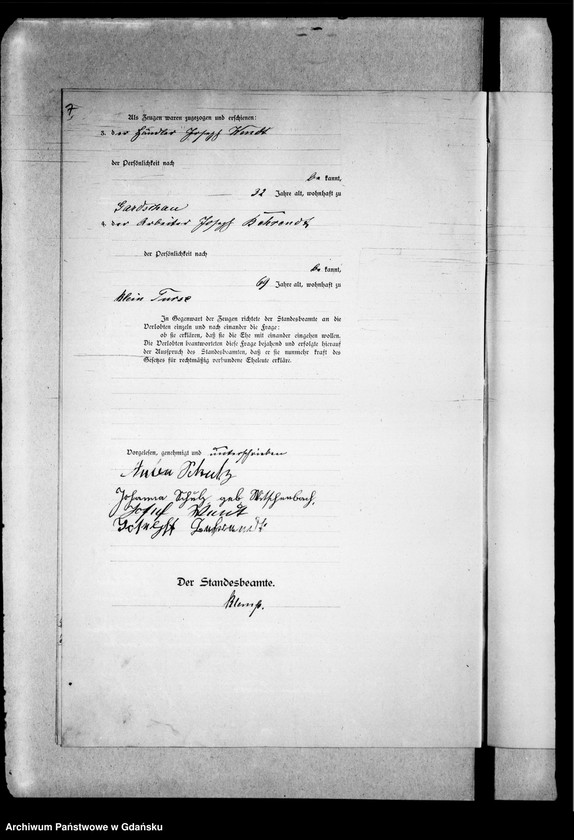 7
Als Zeugen waren zugezogen und erschienen:
3. der Händler Joseph Wendt
der Persönlichkeit nach
be kannt,
32 Jahre alt, wohnhaft zu
Gardschau
4. der Arbeiter Joseph Behrendt,
der Persönlichkeit nach
be kannt,
69 Jahre alt, wohnhaft zu
Klein Turse
In Gegenwart der Zeugen richtete der Standesbeamte an die
Verlobten einzeln und nach einander die Frage:
ob sie erklären, daß sie die Ehe mit einander eingehen wollen.
Die Verlobten beantworteten diese Frage bejahend und erfolgte hierauf
der Ausspruch des Standesbeamten, daß er sie nunmehr kraft des
Gesetzes für rechtmäßig verbundene Eheleute erkläre.
Vorgelesen, genehmigt und unterschrieben
Schulz
Johanna Schulz geb
Josef Wendt
Der Standesbeamte.
Archiwum Państwowe w Gdańsku